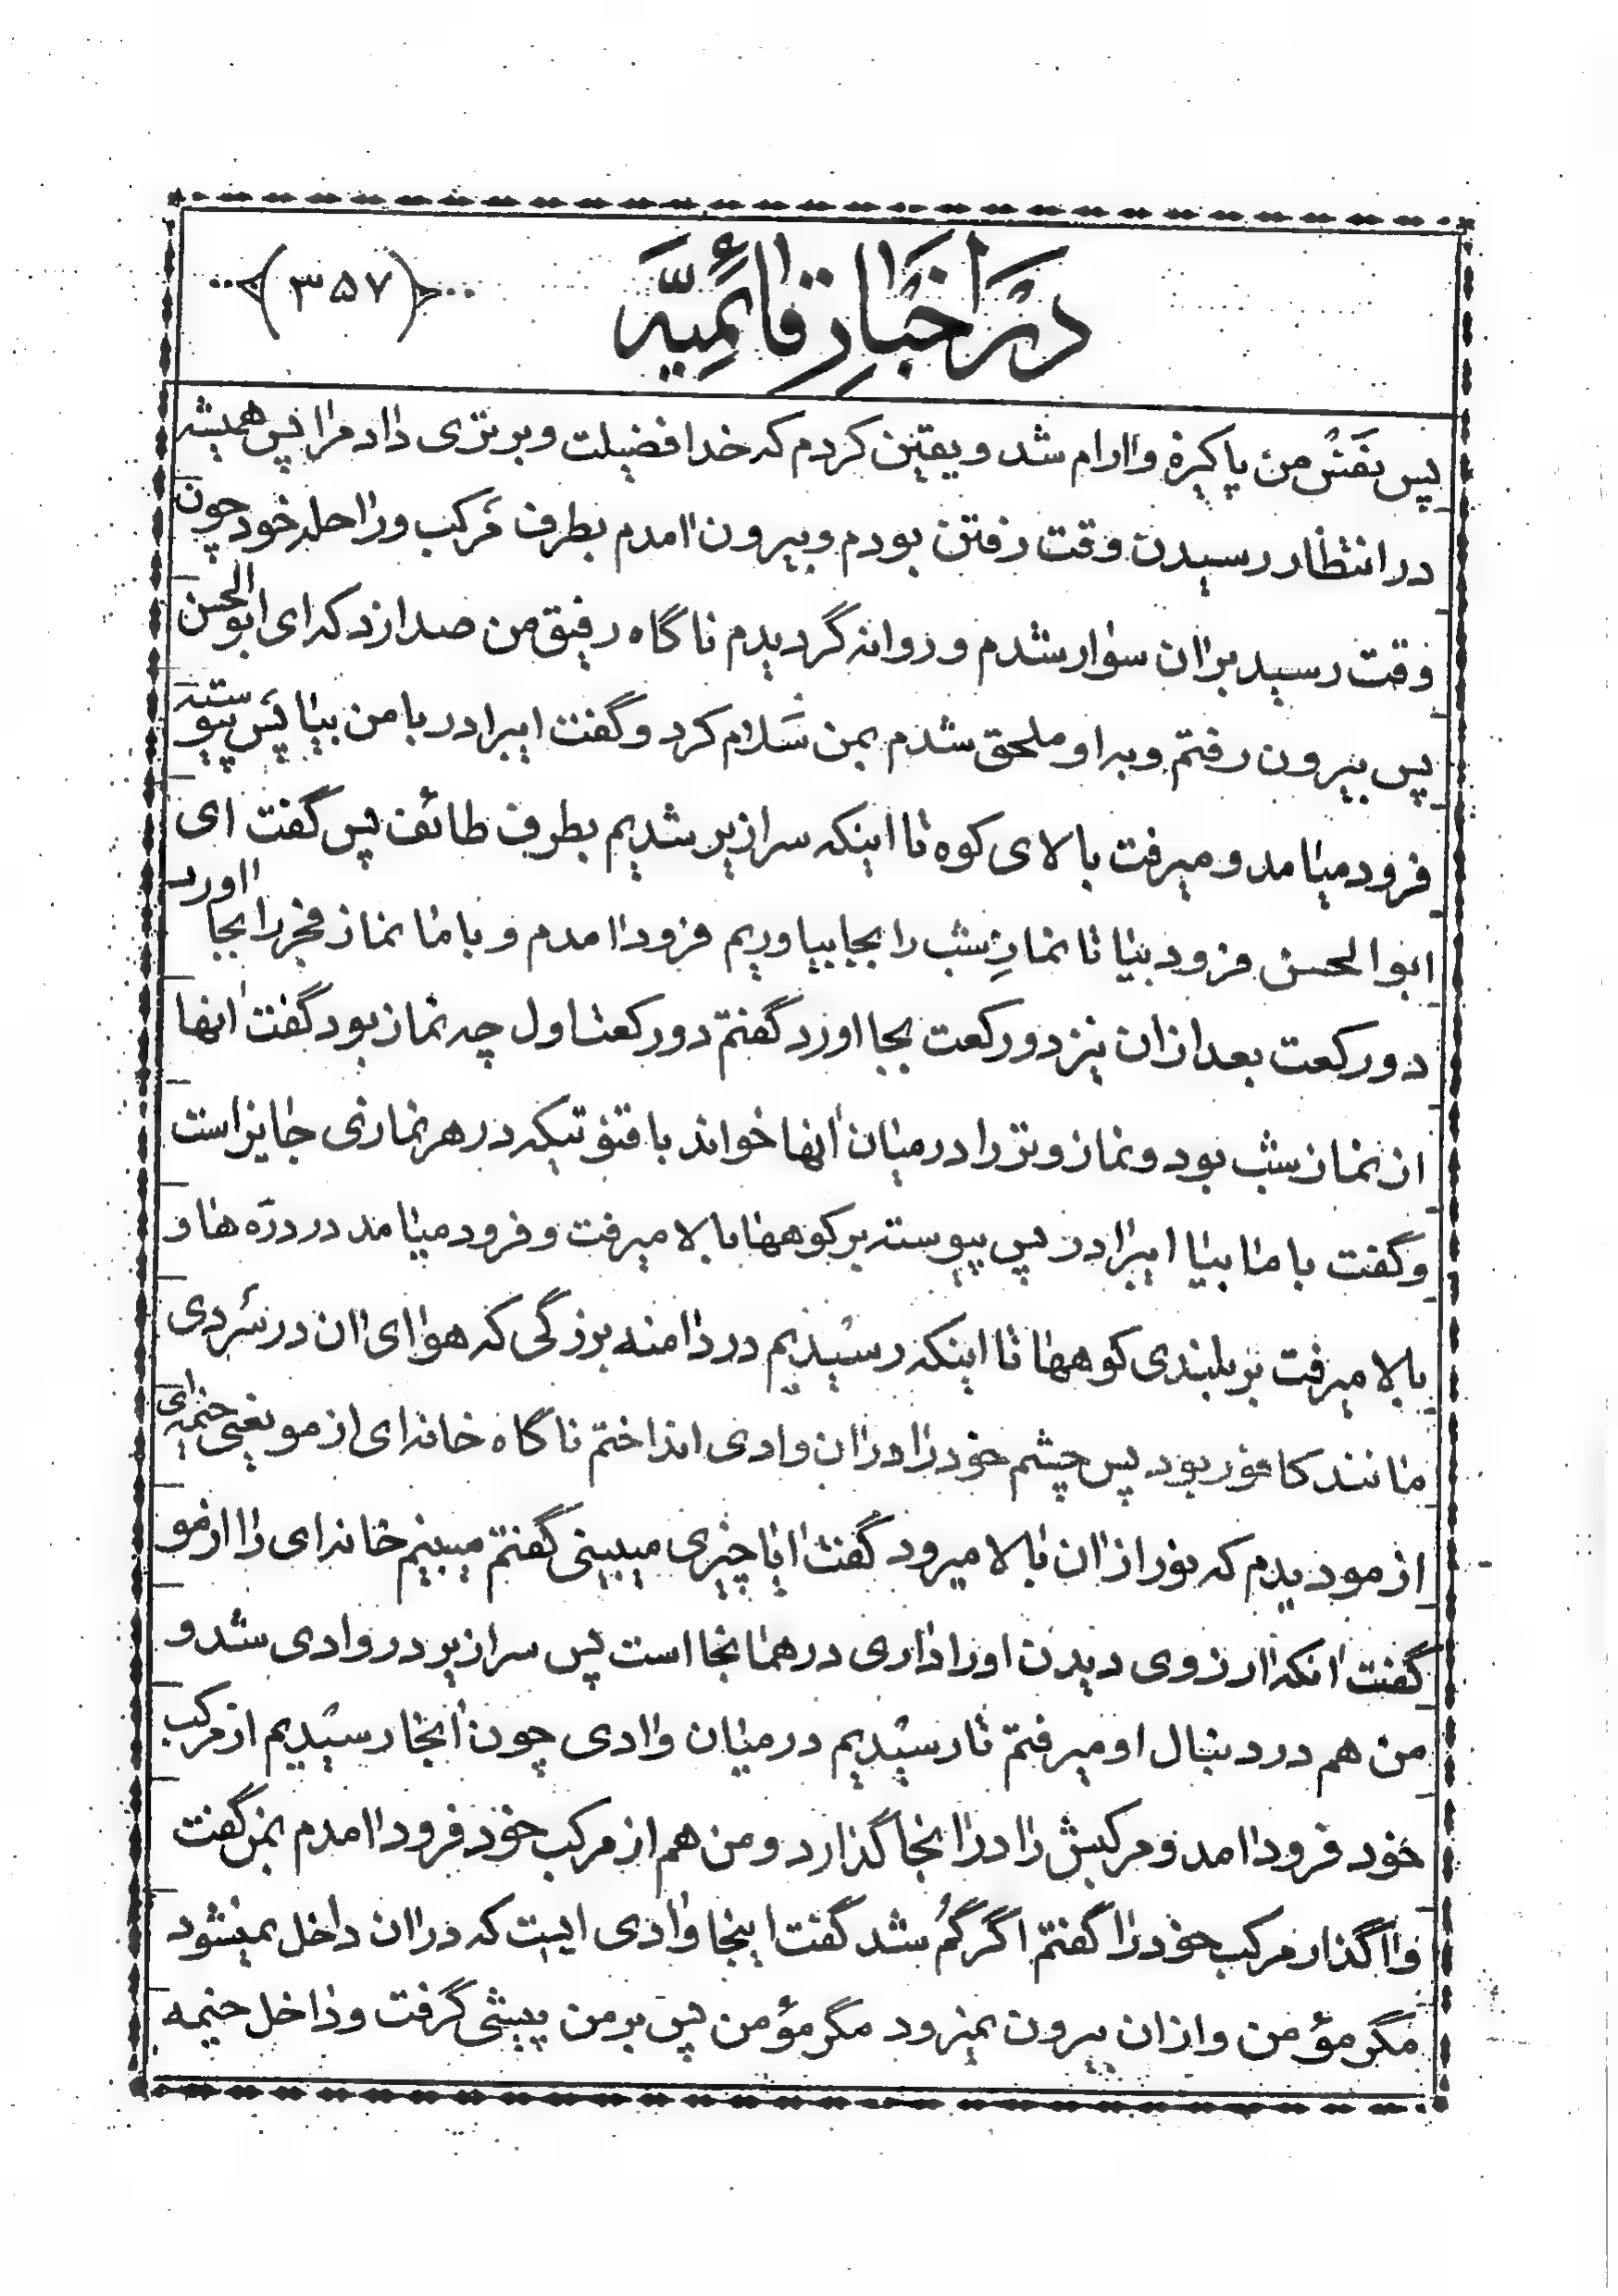 در اخبار قائمیّه
(۳۵۷)
پس نفس من پاکیزه و اارام شد و یقین کردم که خدا فضیلت و برتری داد مرا پس همیشه
در انتظار رسیدن وقت رفتن بودم و بیرون اامدم بطرف مرکب و راحله خود چون
وقت رسید بر اان سوار شدم و روانه گردیدم ناگاه رفیق من صدا زد که ای ابوالحسن
پس بیرون رفتم و به او ملحق شدم بمن سلام کرد و گفت ایبرادر با من بیا پس پیوسته
فرود میاامد و میرفت بالای کوه تا اینکه سرازیر شدیم بطرف طائف پس گفت ای
ابوالحسن فرود بیا تا نمازِ شب را بجا بیاوریم فرود اامدم و با ما نماز فجر را بجا ااورد
دو رکعت بعد از اان نیز دو رکعت بجا ااورد گفتم دو رکعت اول چه نماز بود گفت اانها
از نماز شب بود و نماز وتر را در میان اانها خواند با قنوتیکه در هر نمازی جایز است
و گفت با ما بیا ایبرادر پس پیوسته بر کوهها بالا میرفت و فرود میاامد در درّه ها و
بالا میرفت بر بلندی کوهها تا اینکه رسیدیم در دامنه بزرگی که هوای اان در سردی
مانند کافور بود پس چشم خود را در اان وادی انداختم ناگاه خانه ای از مو یعنی خیمه ای
از مو دیدم که نور از اان بالا میرود گفت اایا چیزی میبینی گفتم میبینم خانه ای را از مو
گفت اانکه اارزوی دیدن او را داری در همانجا است پس سرازیر در وادی شد و
من هم در دنبال او میرفتم تا رسیدیم در میان وادی چون اانجا رسیدیم از مرکب
خود فرود اامد و مرکبش را در اانجا گذارد و من هم از مرکب خود فرود اامدم بمن گفت
واگذار مرکب خود را گفتم اگر گُم شد گفت اینجا وادی ایست که در اان داخل نمیشود
مگر مؤمن و از اان بیرون نمیرود مگر مؤمن پس بر من پیشی گرفت و داخل خیمه